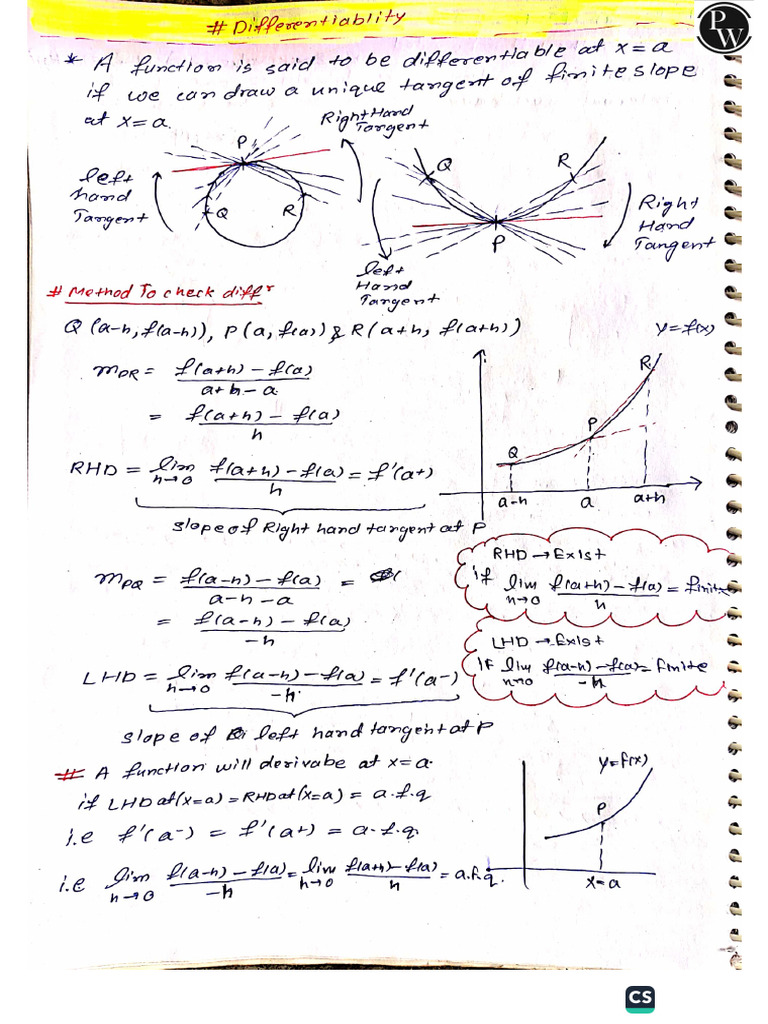 # Differentiablity
PW
* A function is said to be differentiable at x=a
if we can draw a unique tangent of finite slope
at x=a.
Right Hand
Tangent
P
Q
R
left
Hand
Tangent
Q
R
P
Right
Hand
Tangent
left
Hand
Tangent
# Method To check diffr
Q (a-h, f(a-h)), P(a, f(a)) & R(a+h, f(a+h))
y=f(x)
mPR = f(a+h) - f(a) / a+h-a
= f(a+h) - f(a) / h
RHD = lim h→0 f(a+h) - f(a) / h = f'(a+)
slope of Right hand tangent at P
R
P
Q
a-h a a+h
RHD → Exist
if lim h→0 f(a+h) - f(a) / h = finite
mPQ = f(a-h) - f(a) / a-h-a =
= f(a-h) - f(a) / -h
LHD → Exist
if lim h→0 f(a-h) - f(a) / -h = finite
LHD = lim h→0 f(a-h) - f(a) / -h = f'(a-)
slope of left hand tangent at P
# A function will derivabe at x=a.
if LHD at(x=a) = RHD at(x=a) = a.f.q
i.e f'(a-) = f'(a+) = a.f.q.
i.e lim h→0 f(a-h) - f(a) / -h = lim h→0 f(a+h) - f(a) / h = a.f.q.
y=f(x)
P
x=a
CS